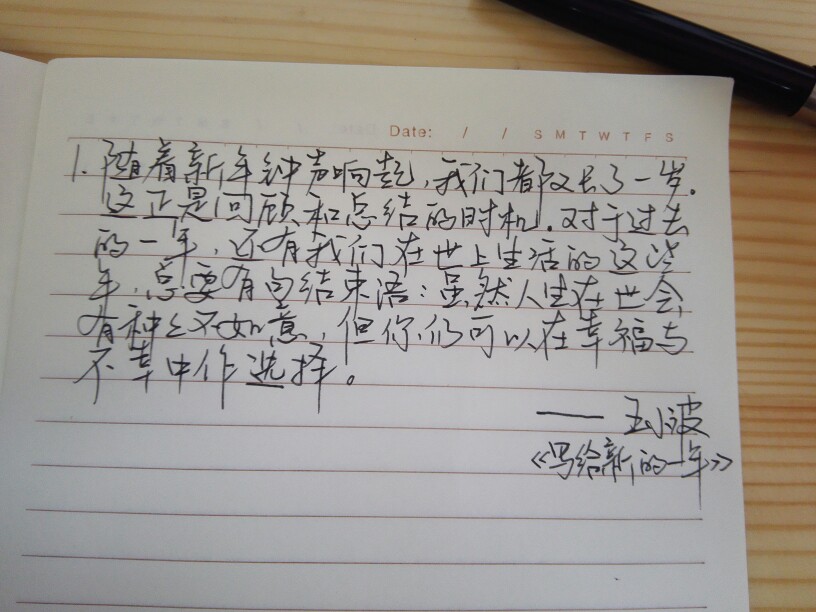 Date: / / S M T W T F S
1. 随着新年钟声响起,我们都又长了一岁。
这正是回顾和总结的时机。对于过去
的一年,还有我们在世上生活的这些
年,总要有句结束语:虽然人生在世会
有种种不如意,但你仍可以在幸福与
不幸中作选择。
—— 王小波
《写给新的一年》